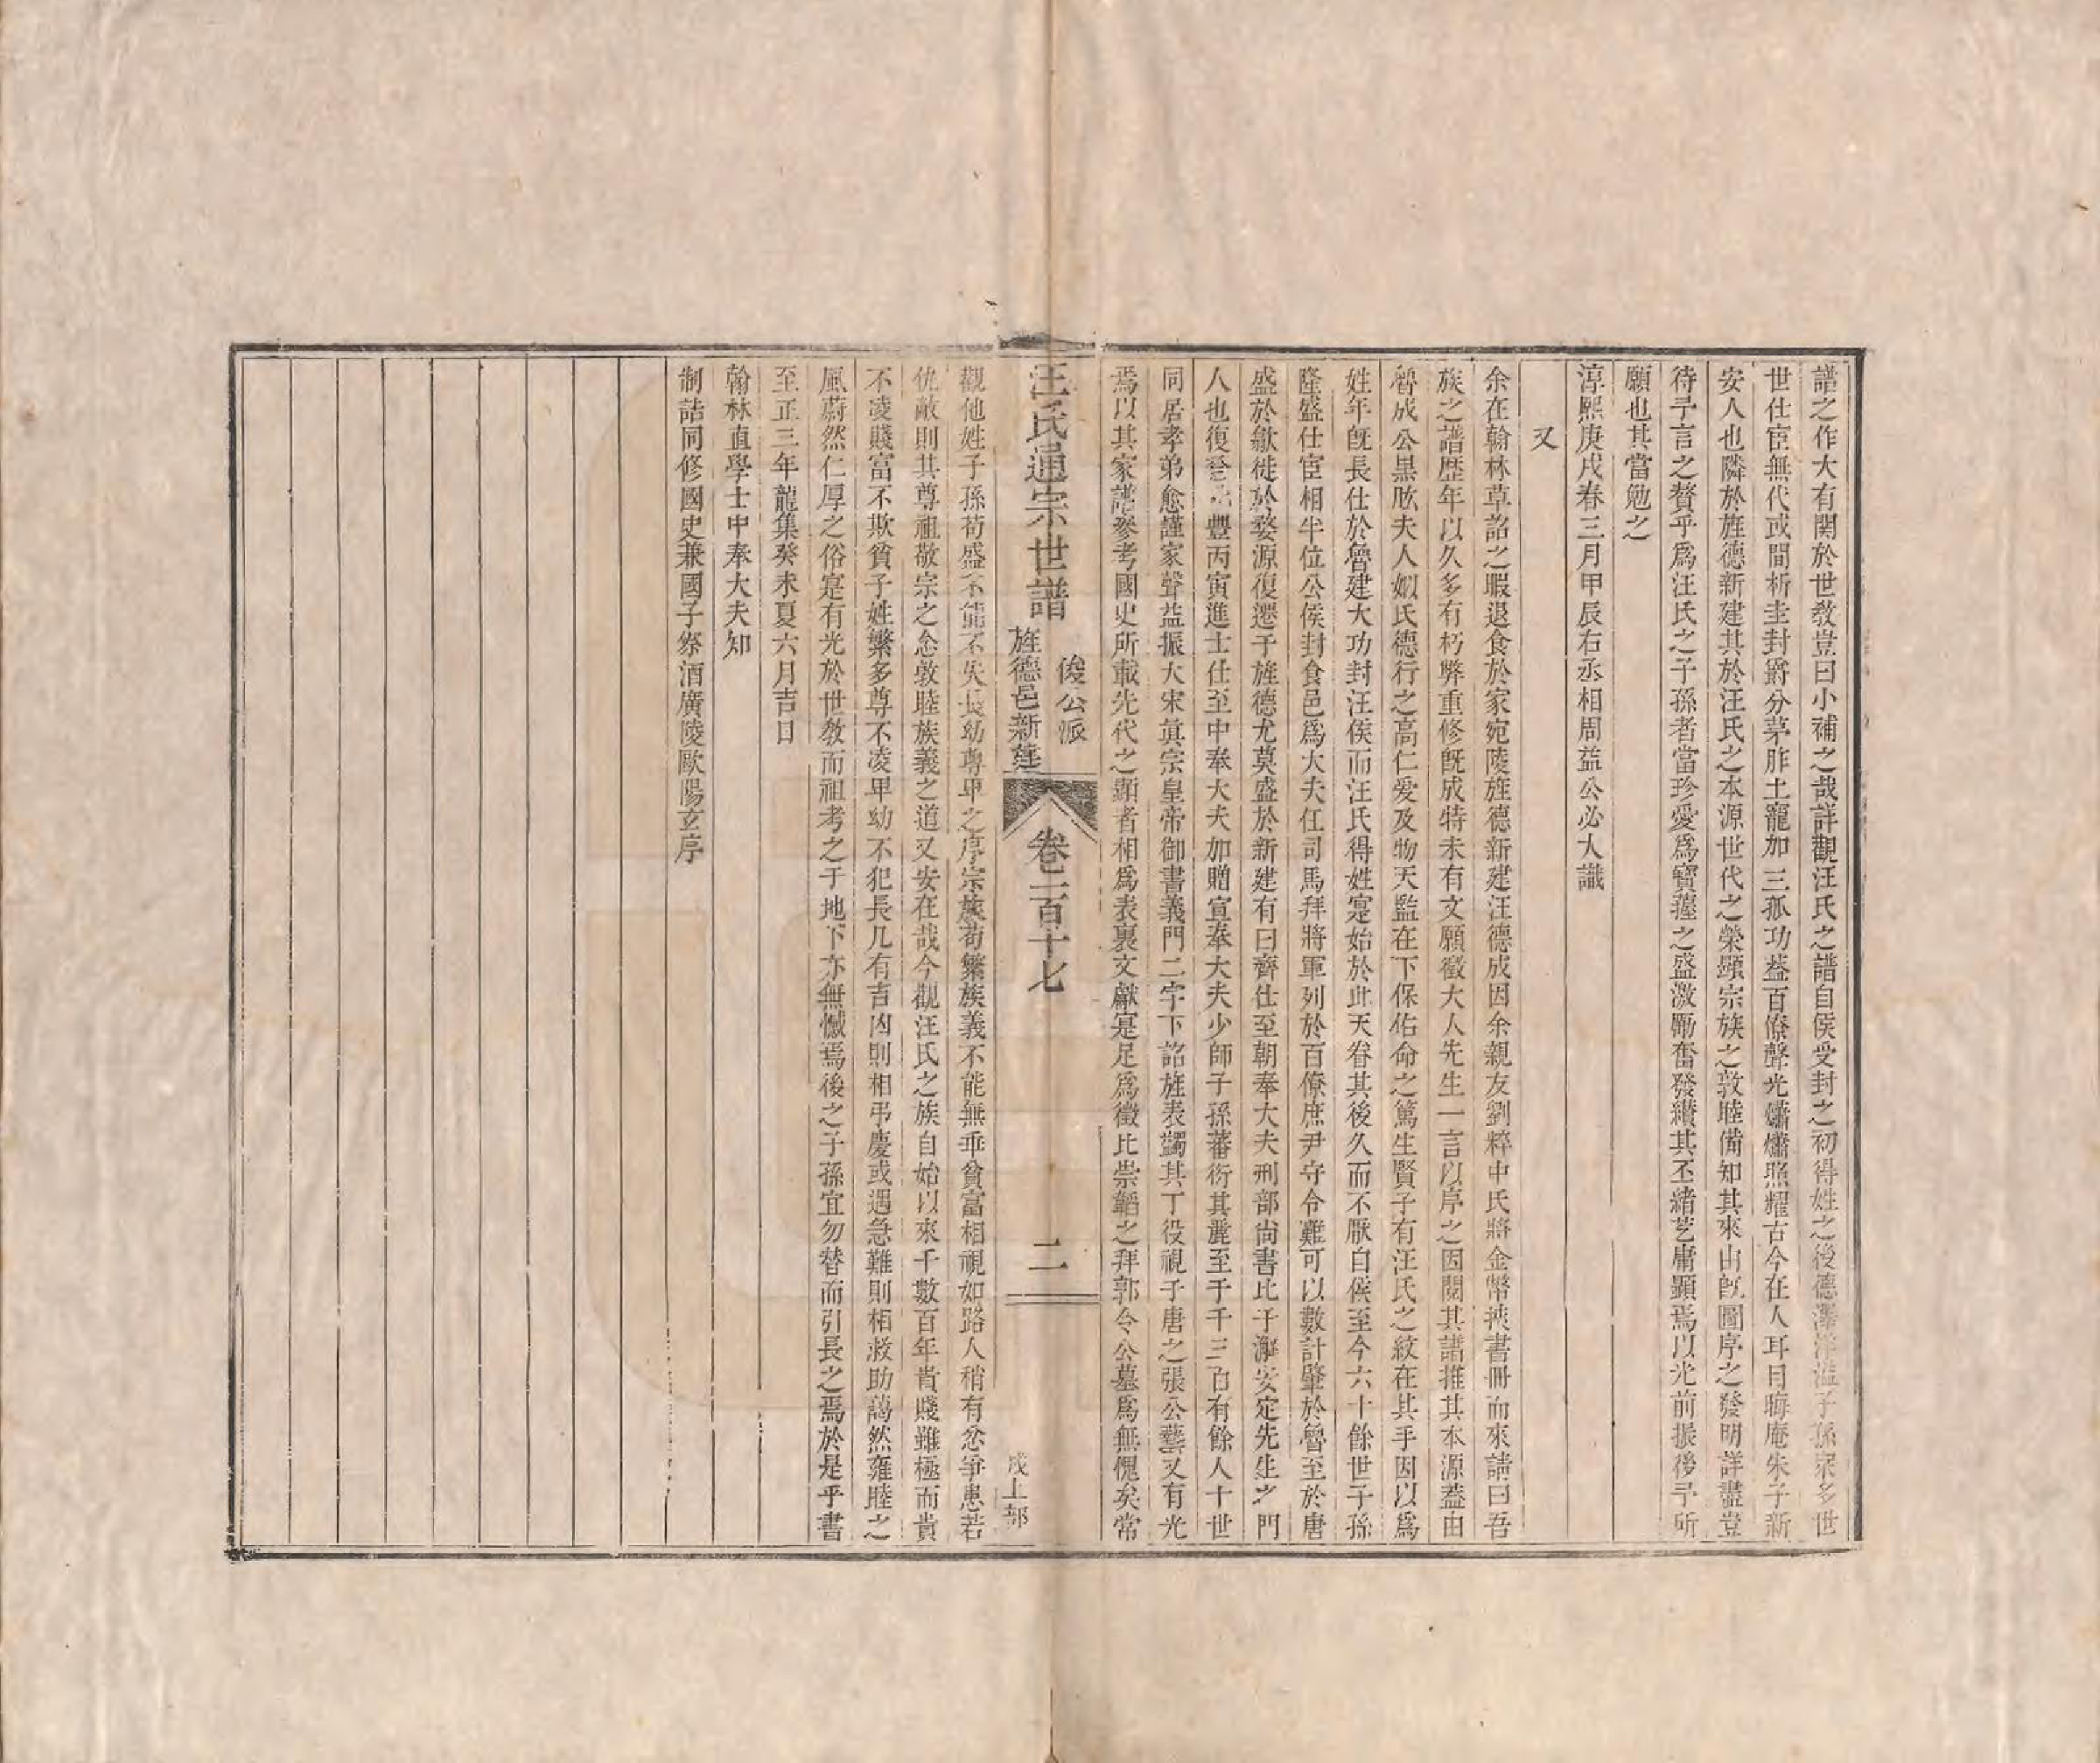 譜之作大有関於世敎豈曰小補之哉詳觀汪氏之譜自侯受封之初得姓之後德澤洋溢子孫衆多世
世仕宦無代或間析圭封爵分茅胙土寵加三孤功葢百僚聲光爌爌照耀古今在人耳目晦庵朱子新
安人也隣於旌德新建其於汪氏之本源世代之榮顯宗族之敦睦備知其來由旣圖序之發明詳盡豈
待予言之贅乎爲汪氏之子孫者當珍愛爲寳藉之盛激勵奮發纘其丕緒登庸顯焉以光前振後予所
願也其當勉之
淳熙庚戌春三月甲辰右丞相周益公必大識
又
余在翰林草詔之暇退食於家宛陵旌德新建汪德成因余親友劉粹中氏將金幣挾書冊而來請曰吾
族之譜歴年以久多有朽弊重修旣成特未有文願徵大人先生一言以序之因閱其譜推其本源葢由
魯成公黒肱夫人姒氏德行之高仁愛及物天監在下保佑命之篤生賢子有汪氏之紋在其手因以爲
姓年旣長仕於魯建大功封汪侯而汪氏得姓寔始於此天眷其後久而不厭自侯至今六十餘世子孫
隆盛仕宦相半位公侯封食邑爲大夫任司馬拜將軍列於百僚庶尹守令難可以數計肇於魯至於唐
盛於歙徙於婺源復遷于旌德尤莫盛於新建有曰齊仕至朝奉大夫刑部尚書比予澥安定先生之門
人也復登 豐丙寅進士仕至中奉大夫加贈宣奉大夫少師子孫蕃衍其麗至于千三百有餘人十世
同居孝弟愈謹家聲益振大宋眞宗皇帝御書義門二字下詔旌表蠲其丁役視子唐之張公藝又有光
焉以其家譜參考國史所載先代之顯者相爲表裏文獻寔足爲徵比崇韜之拜郭令公墓爲無愧矣常
汪氏通宗世譜
俊公派
旌德邑新建
卷一百十七
二
戊上部
觀他姓子孫苟盛不能不失長幼尊卑之序宗族苟繁族義不能無乖貧富相視如路人稍有忿爭患若
仇敵則其尊祖敬宗之念敦睦族義之道又安在哉今觀汪氏之族自始以來千數百年貴賤雖極而貴
不凌賤富不欺貧子姓繁多尊不凌卑幼不犯長凡有吉凶則相弔慶或遇急難則相救助藹然雍睦之
風蔚然仁厚之俗寔有光於世敎而祖考之于地下亦無憾焉後之子孫宜勿替而引長之焉於是乎書
至正三年龍集癸未夏六月吉日
翰林直學士中奉大夫知
制誥同修國史兼國子祭酒廣陵歐陽玄序